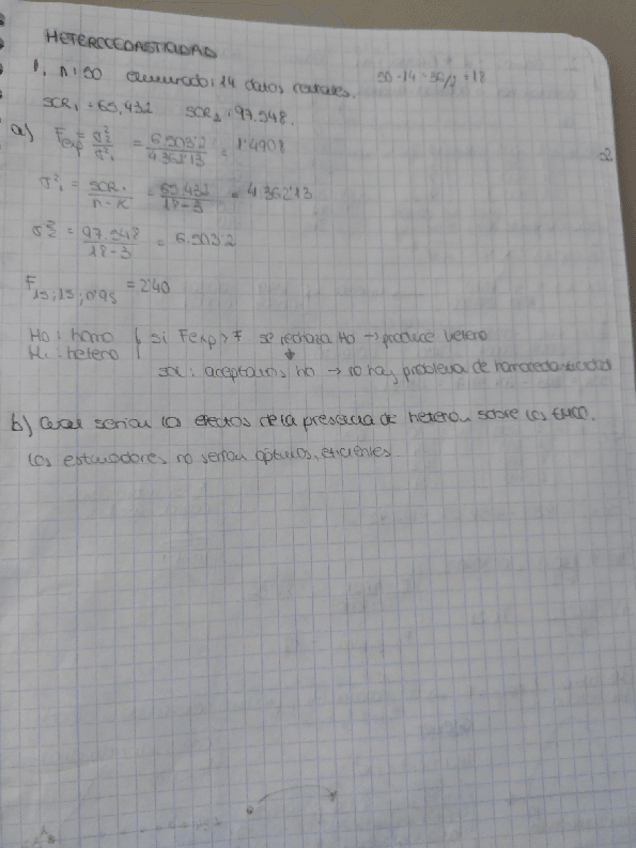 HETEROCEDASTICIDAD
1. n=50 eliminado: 14 datos centrales. 50-14=36/2=18
SCR₁ = 65.432 SCR₂ = 97.548.
a) Fexp = σ²₂/σ²₁ = 6.503'2/4.362'13 = 1'4908
σ²₁ = SCR₁/n-K = 65.432/18-3 = 4.362'13
σ²₂ = 97.548/18-3 = 6.503'2
F15;15;0'95 = 2'40
H0: homo | si Fexp > F se rechaza H0 → produce hetero
H1: hetero | sol: aceptamos H0 → no hay problema de
b) Cuál serían los efectos de la presencia de heteroc sobre los EMCO.
Los estimadores no serían óptimos, eficientes